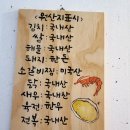 <원산지표시>
김치: 국내산
쌀: 국내산
해물: 국내산
돼지: 한돈
소갈비찜: 미국산
등뼈: 국내산
새우: 국내산
육전: 한우
전복: 국내산